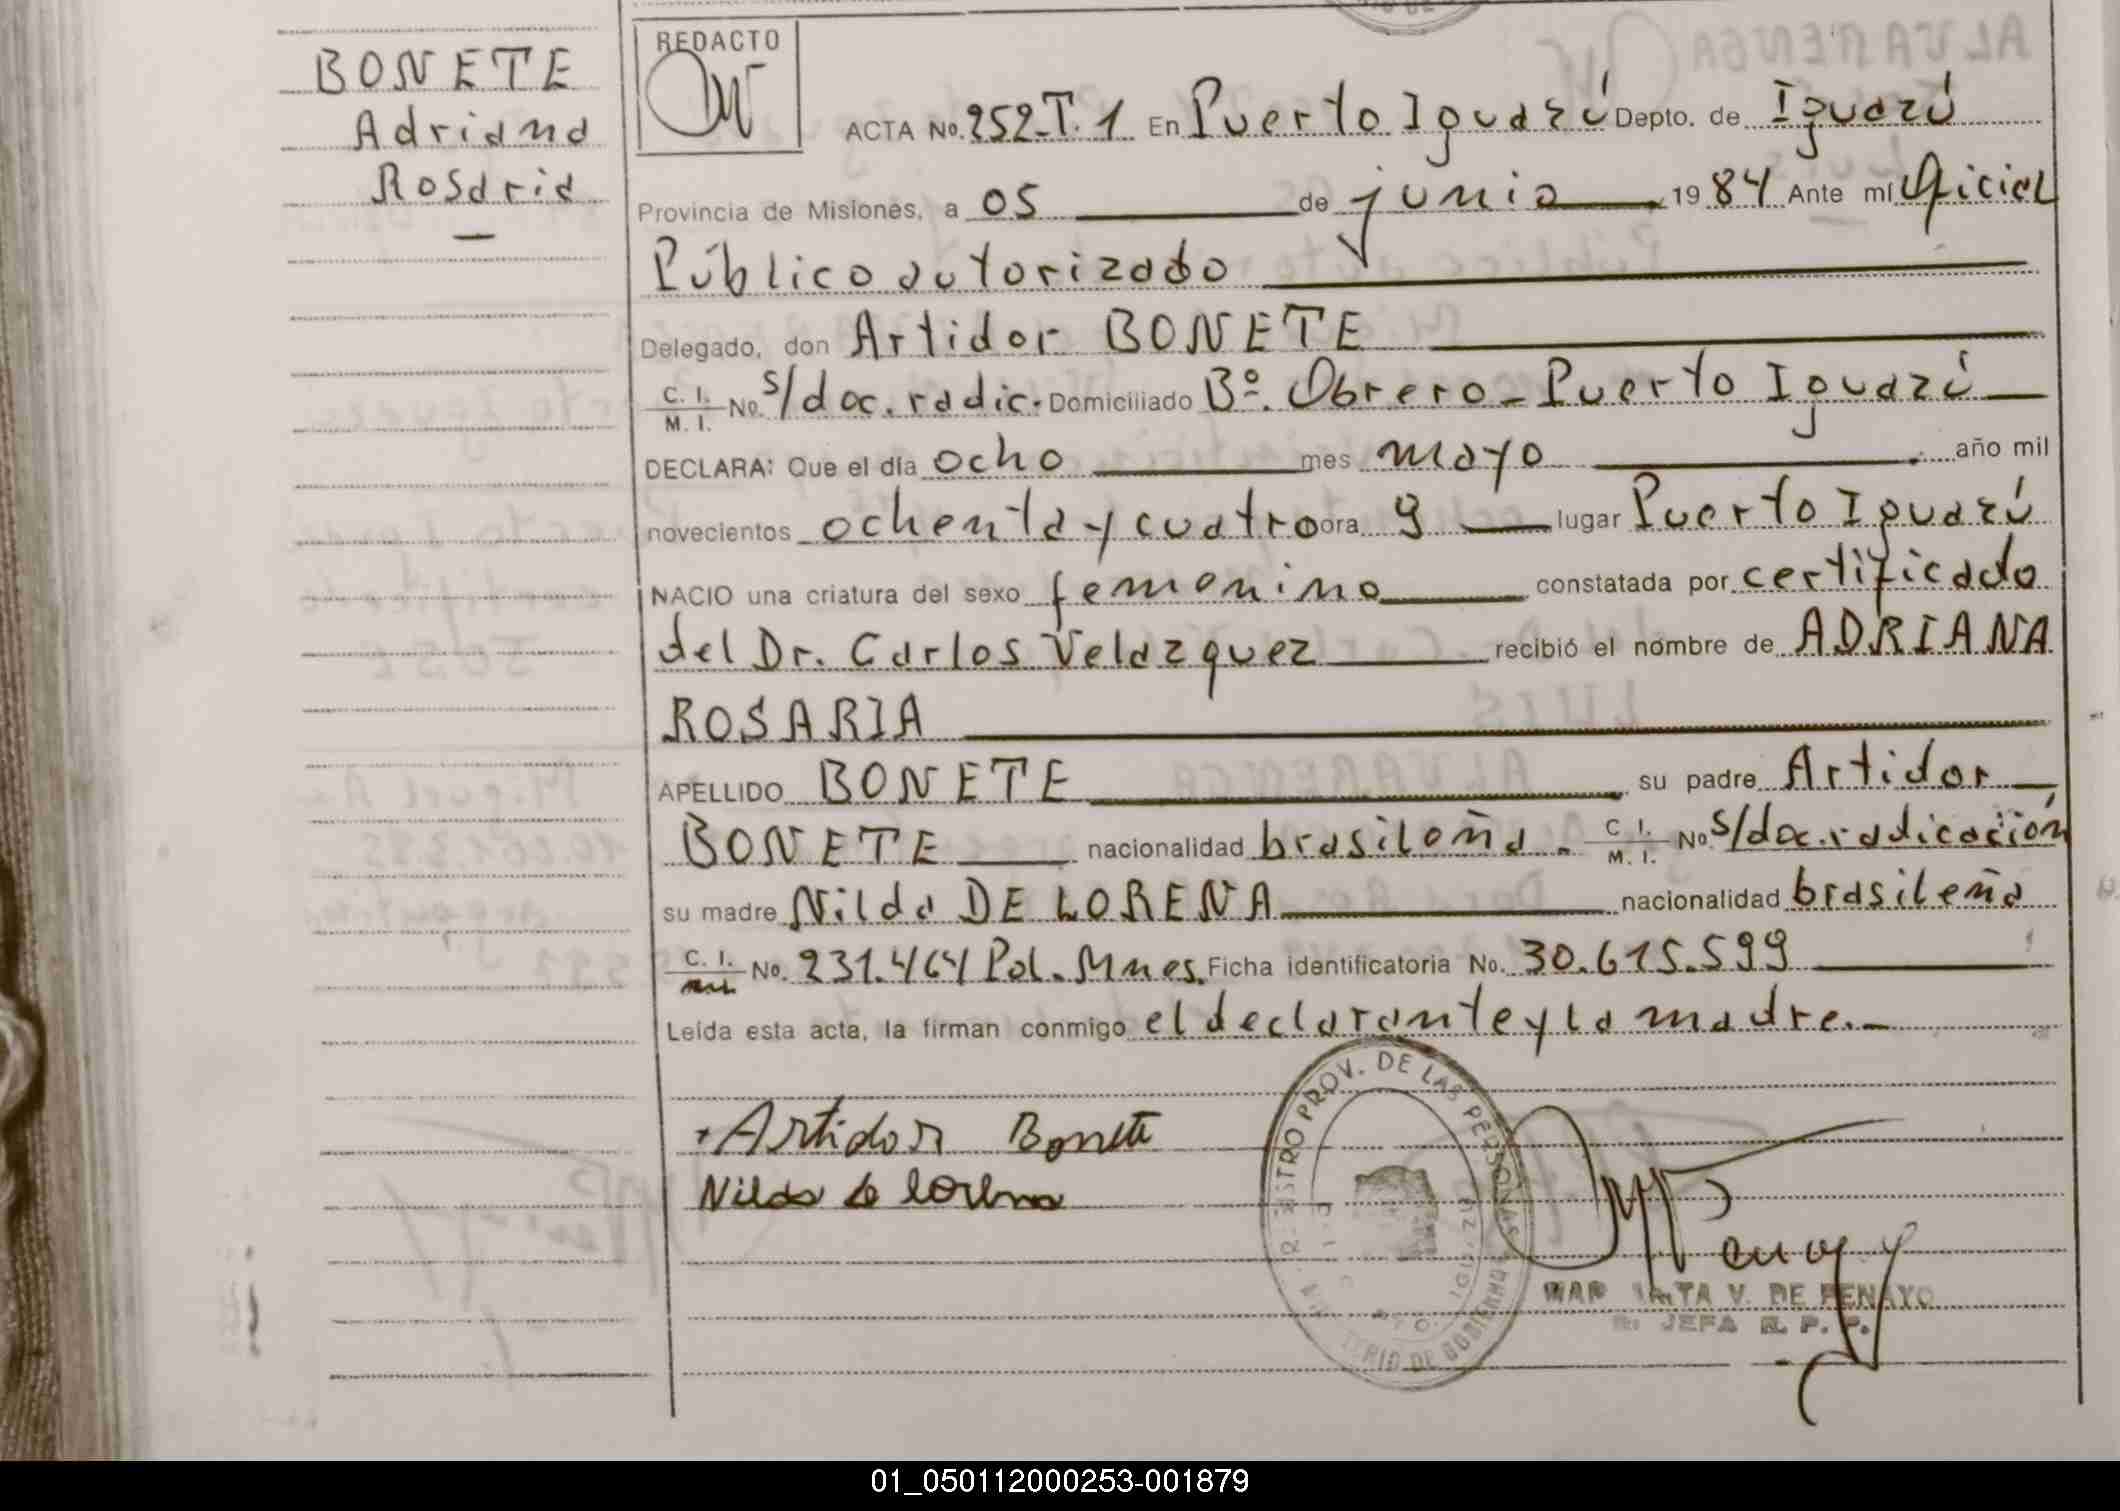 BONETE
Adriana
Rosaria
REDACTO
ACTA No. 252-T.1 En Puerto Iguazú Depto. de Iguazú
Provincia de Misiones, a 05 de junio 1984 Ante mí Oficial
Público autorizado
Delegado, don Artidor BONETE
C. I. M. I. No. s/doc. radic. Domiciliado Bº. Obrero - Puerto Iguazú
DECLARA: Que el día ocho mes mayo año mil
novecientos ochenta y cuatro ora 9 lugar Puerto Iguazú
NACIO una criatura del sexo femenino constatada por certificado
del Dr. Carlos Velazquez recibió el nombre de ADRIANA
ROSARIA
APELLIDO BONETE su padre Artidor
BONETE nacionalidad brasileña. C. I. M. I. No. s/doc. radicación
su madre Nilda DE LORENA nacionalidad brasileña
C. I. No. 231.464 Pol. Mnes. Ficha identificatoria No. 30.615.599
Leída esta acta, la firman conmigo el declarante y la madre.-
Artidor Bonete
Nilda de lorena
PROV. DE LAS PERSONAS
DE GOBIERNO
TA V. DE PENAYO
JEFA R. P. P.
01_050112000253-001879